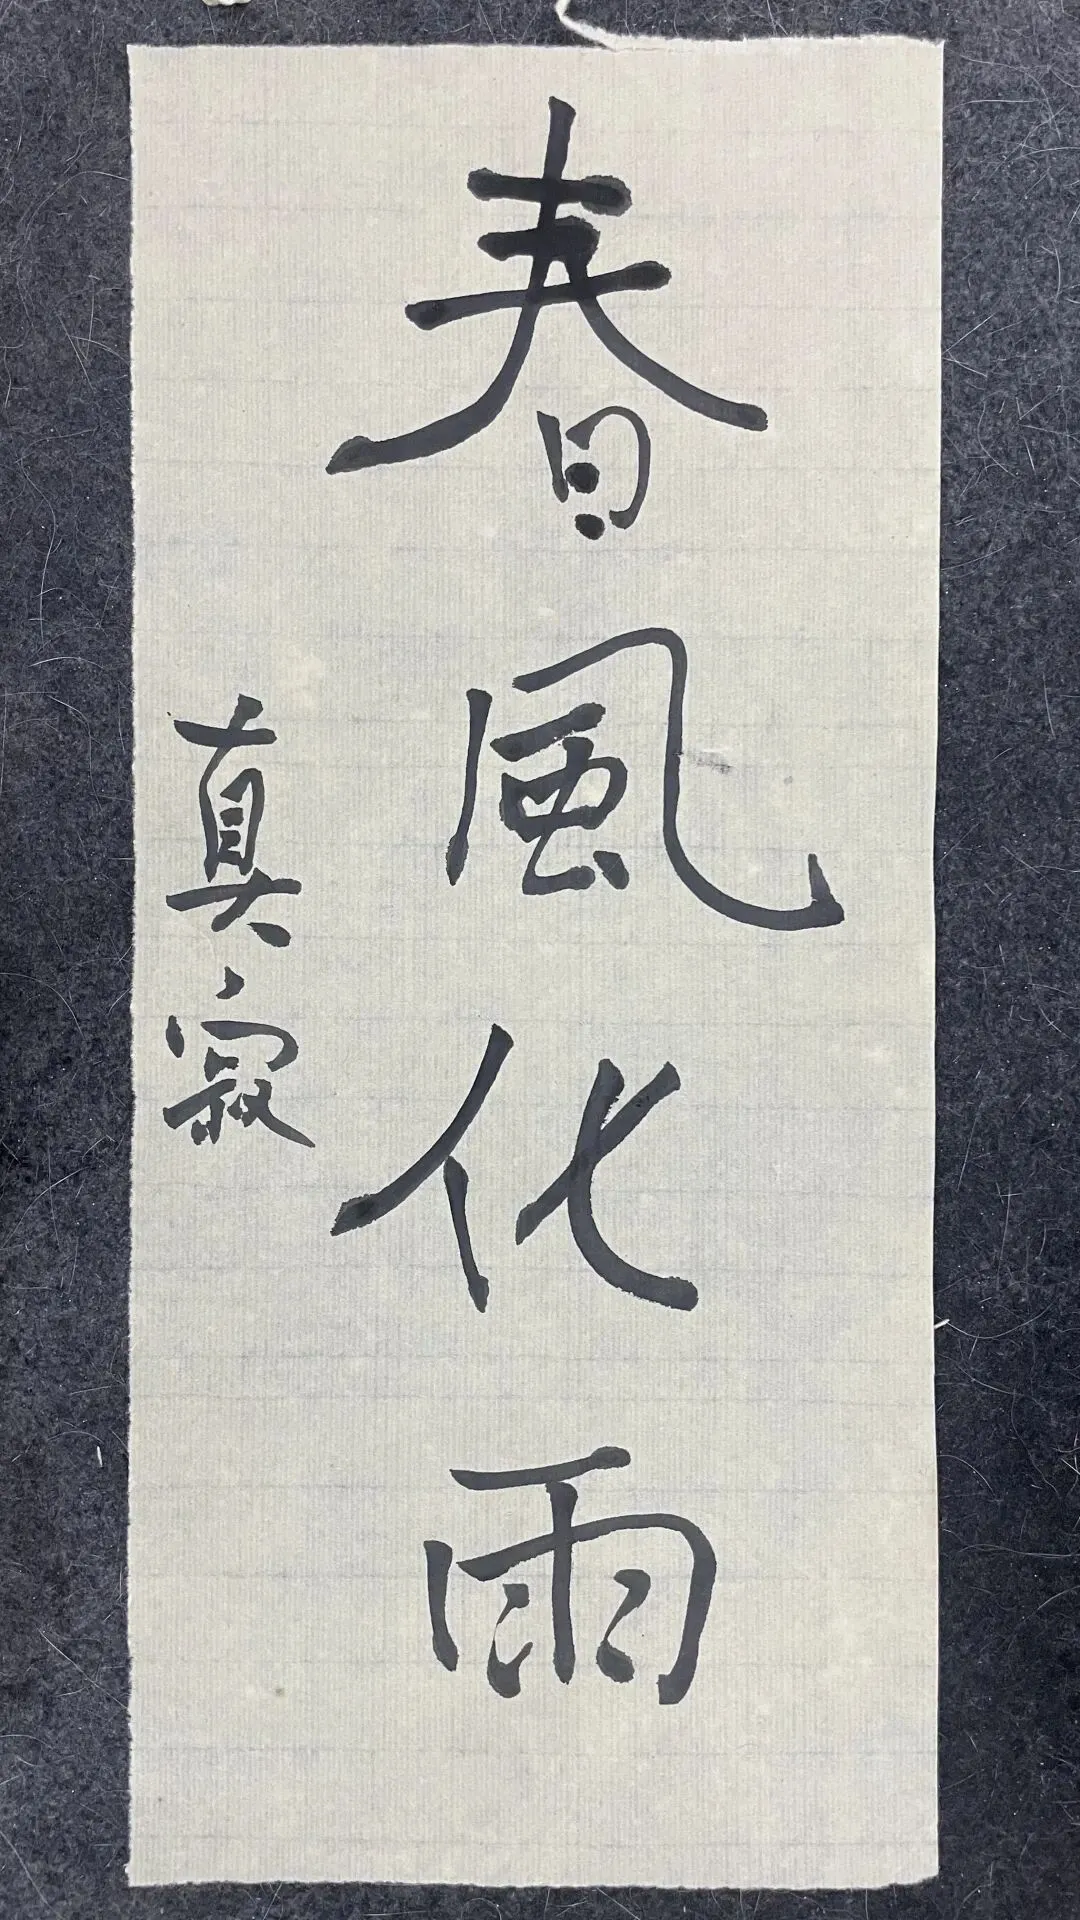 春風化雨
真寂